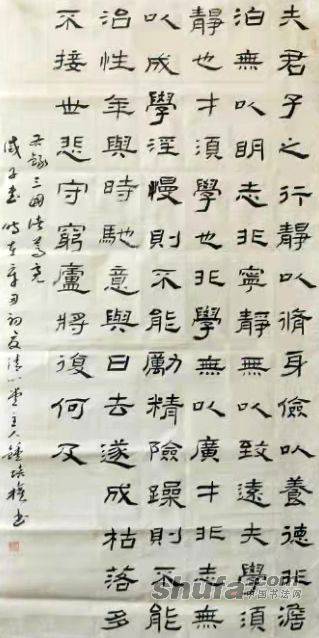 夫君子之行靜以脩身儉以養德非澹
泊無以明志非寧靜無以致遠夫學須
靜也才須學也非學無以廣才非志無
以成學淫慢則不能勵精險躁則不能
治性年與時馳意與日去遂成枯落多
不接世悲守窮廬將復何及
右錄三國諸葛亮
誡子書時在辛丑初夏主人鍾培書
中国书法网